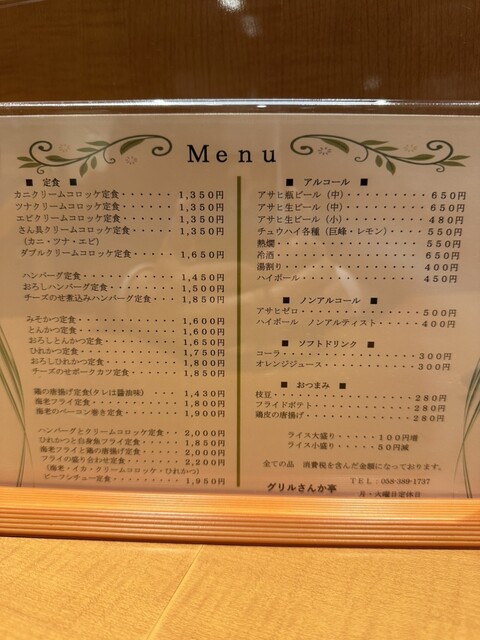 Menu
■ 定食 ■
カニクリームコロッケ定食・・・・・・・1,350円
ツナクリームコロッケ定食・・・・・・・1,350円
エビクリームコロッケ定食・・・・・・・1,350円
さん具クリームコロッケ定食・・・・・・1,350円
(カニ・ツナ・エビ)
ダブルクリームコロッケ定食・・・・・・1,650円
ハンバーグ定食・・・・・・・・・・・・1,450円
おろしハンバーグ定食・・・・・・・・・1,500円
チーズのせ煮込みハンバーグ定食・・・・1,850円
みそかつ定食・・・・・・・・・・・・・1,600円
とんかつ定食・・・・・・・・・・・・・1,600円
おろしとんかつ定食・・・・・・・・・・1,650円
ひれかつ定食・・・・・・・・・・・・・1,750円
おろしひれかつ定食・・・・・・・・・・1,800円
チーズのせポークカツ定食・・・・・・・1,850円
鶏の唐揚げ定食(タレは醤油味)・・・・1,430円
海老フライ定食・・・・・・・・・・・・1,800円
海老のベーコン巻き定食・・・・・・・・1,900円
ハンバーグとクリームコロッケ定食・・・2,000円
ひれかつと白身魚フライ定食・・・・・・1,850円
海老フライと鶏の唐揚げ定食・・・・・・2,000円
フライの盛り合わせ定食・・・・・・・・2,200円
(海老・イカ・クリームコロッケ・ひれかつ)
ビーフシチュー定食・・・・・・・・・・1,950円
■ アルコール ■
アサヒ瓶ビール(中)・・・・・・・・・650円
アサヒ生ビール(中)・・・・・・・・・650円
アサヒ生ビール(小)・・・・・・・・・480円
チュウハイ各種(巨峰・レモン)・・・・550円
熱燗・・・・・・・・・・・・・・・・・550円
冷酒・・・・・・・・・・・・・・・・・650円
湯割り・・・・・・・・・・・・・・・・400円
ハイボール・・・・・・・・・・・・・・450円
■ ノンアルコール ■
アサヒゼロ・・・・・・・・・・・・・・500円
ハイボール ノンアルティスト・・・・・400円
■ ソフトドリンク ■
コーラ・・・・・・・・・・・・・・・・300円
オレンジジュース・・・・・・・・・・・300円
■ おつまみ ■
枝豆・・・・・・・・・・・・・・・・・280円
フライドポテト・・・・・・・・・・・・280円
鶏皮の唐揚げ・・・・・・・・・・・・・280円
ライス大盛り・・・・・100円増
ライス小盛り・・・・・50円減
全ての品 消費税を含んだ金額になっております。
グリルさんか亭 TEL:058-589-1737
月・火曜日定休日